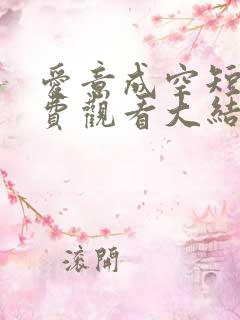 愛意成空短
費觀看大結
滾開